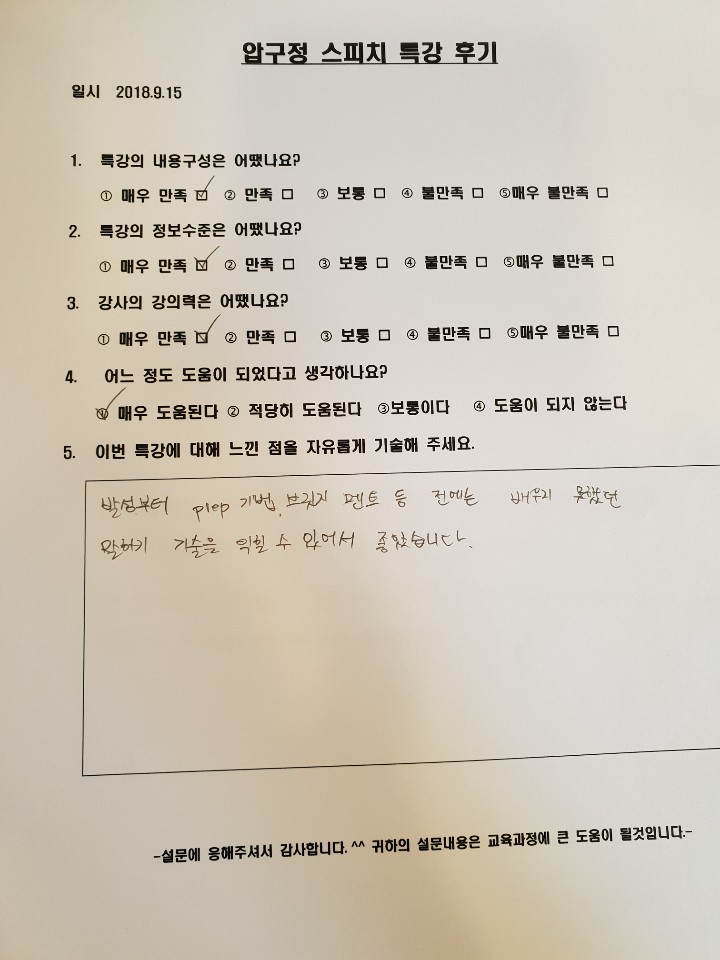 압구정 스피치 특강 후기
일시 2018.9.15
1. 특강의 내용구성은 어땠나요?
① 매우 만족 ☑ ② 만족 □ ③ 보통 □ ④ 불만족 □ ⑤매우 불만족 □
2. 특강의 정보수준은 어땠나요?
① 매우 만족 ☑ ② 만족 □ ③ 보통 □ ④ 불만족 □ ⑤매우 불만족 □
3. 강사의 강의력은 어땠나요?
① 매우 만족 ☑ ② 만족 □ ③ 보통 □ ④ 불만족 □ ⑤매우 불만족 □
4. 어느 정도 도움이 되었다고 생각하나요?
① 매우 도움된다 ② 적당히 도움된다 ③보통이다 ④ 도움이 되지 않는다
5. 이번 특강에 대해 느낀 점을 자유롭게 기술해 주세요.
발성부터 prep 기법, 브릿지 멘트 등 전에는 배우지 못했던
말하기 기술을 익힐 수 있어서 좋았습니다.
-설문에 응해주셔서 감사합니다.^^ 귀하의 설문내용은 교육과정에 큰 도움이 될것입니다.-